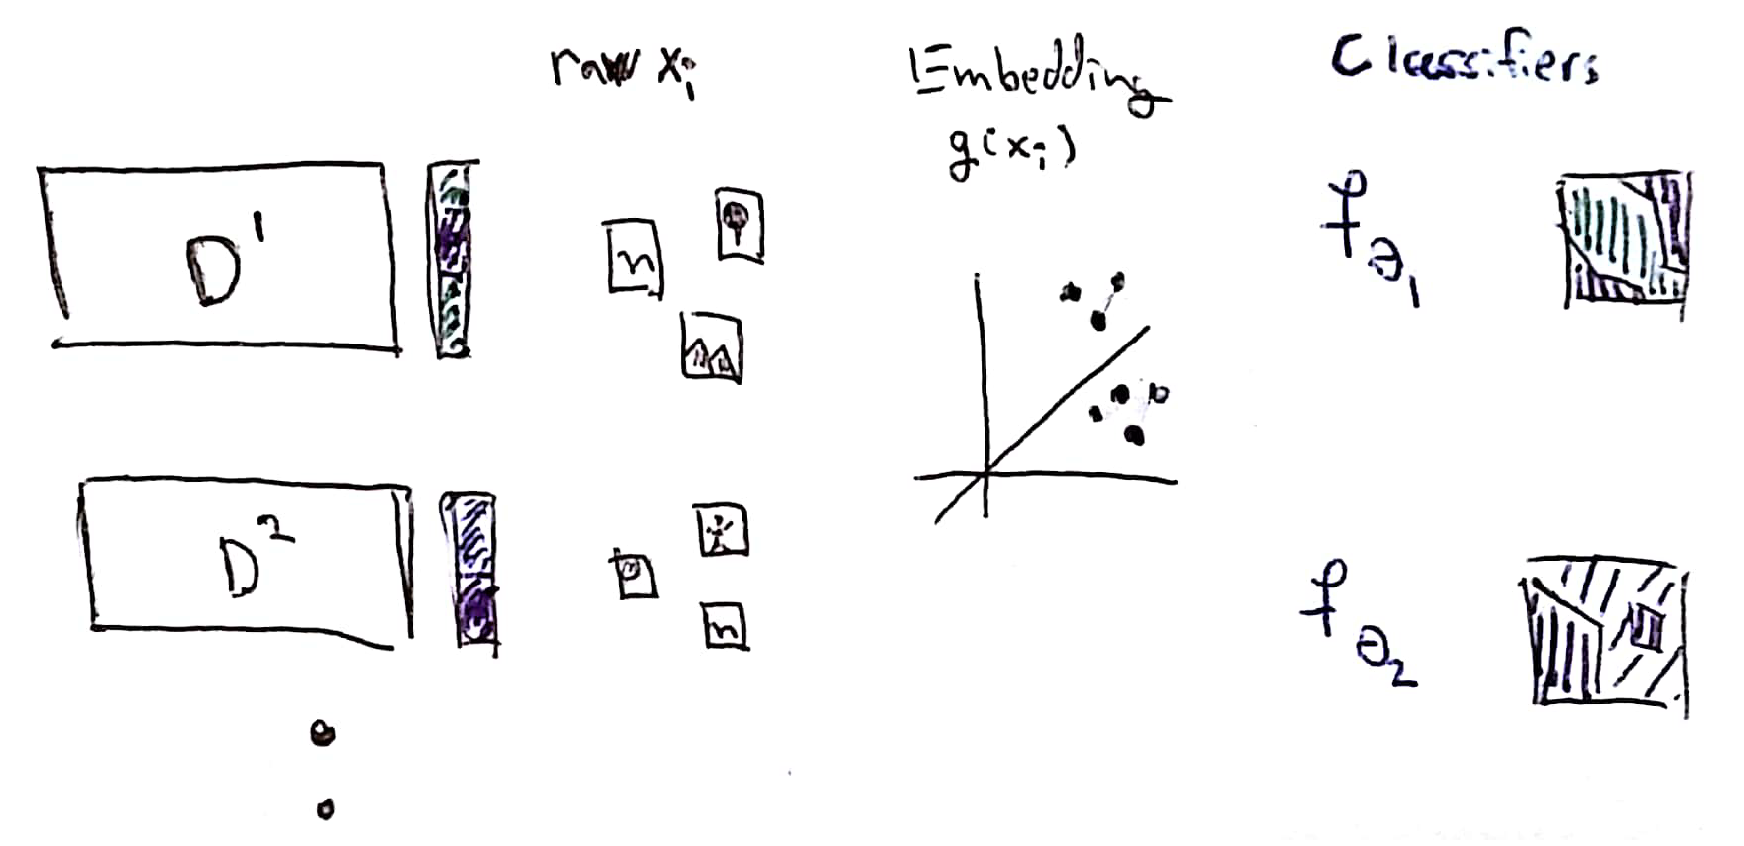 raw xᵢ
Embedding
g(xᵢ)
Classifiers
D¹
n
f_θ₁
D²
n
f_θ₂